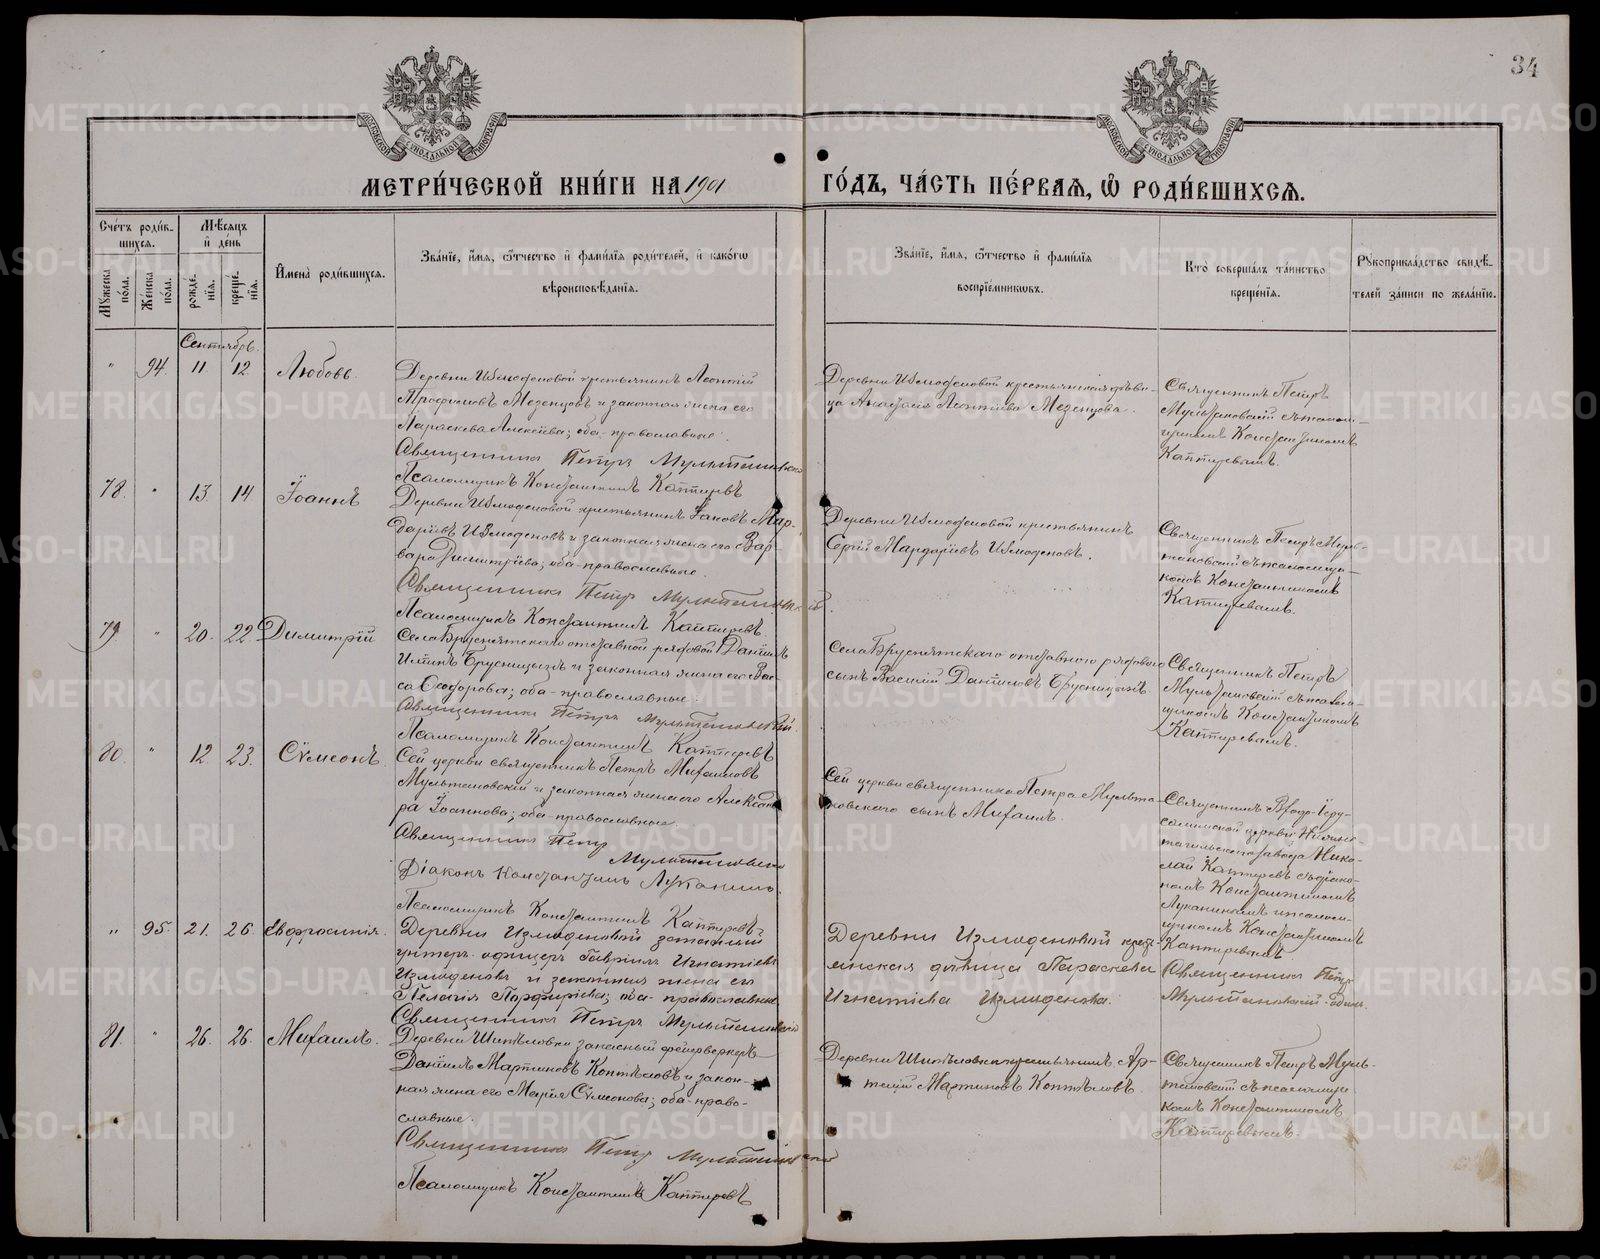 34
МЕТРИ́ЧЕСКОЙ КНИ́ГИ НА 1901 ГО́ДЪ, ЧА́СТЬ ПЕ́РВАЯ, Ѡ҆ РОДИ́ВШИХСЯ.
Сче́тъ роди́в-
шихся.
Мѣ́сяцъ
и҆ де́нь
Мꙋ́жеска по́ла.
Же́нска по́ла.
рожде́-
нїя.
креще́-
нїя.
И҆мена̀ роди́вшихся.
Зва́нїе, и҆́мя, ѻ҆́тчество и҆ фами́лїя роди́телей, и҆ како́гѡ
вѣроисповѣ́данїя.
Зва́нїе, и҆́мя, ѻ҆́тчество и҆ фами́лїя
воспрїе́мникѡвъ.
Кто̀ соверша́лъ та́инство
креще́нїя.
Рꙋкоприкла́дство свидѣ́-
телей за́писи по жела́нїю.
Сентябрь.
" 94. 11. 12. Любовь.
Деревни Измоденовой крестьянинъ Леонтій
Трофимовъ Мезенцовъ и законная жена его
Параскева Алексіева; оба православные.
Священникъ Петръ Мультановскій
Псаломщикъ Константинъ Каптеревъ
Деревни Измоденовой крестьянская дѣви-
ца Анастасія Леонтіева Мезенцова.
Священникъ Петръ
Мультановскій съ псалом-
щикомъ Константиномъ
Каптеревымъ.
78. " 13. 14 Іоаннъ
Деревни Измоденовой крестьянинъ Іаковъ Мар-
даріевъ Измоденовъ и законная жена его Вар-
вара Димитріева; оба православные.
Священникъ Петръ Мультановскій
Псаломщикъ Константинъ Каптеревъ
Деревни Измоденовой крестьянинъ
Сергій Мардаріевъ Измоденовъ.
Священникъ Петръ Муль-
тановскій съ псаломщи-
комъ Константиномъ
Каптеревымъ.
79 " 20. 22. Димитрій
Села Бруснятскаго отставной рядовой Даніилъ
Илiинъ Брусницынъ и законная жена его Вас-
са Ѳеодорова; оба православные.
Священникъ Петръ Мультановскій.
Псаломщикъ Константинъ Каптеревъ
Села Бруснятскаго отставного рядового
сынъ Василій Даніиловъ Брусницынъ.
Священникъ Петръ
Мультановскій съ псалом-
щикомъ Константиномъ
Каптеревымъ.
80. " 12 23. Сѵмеонъ.
Сей церкви священникъ Петръ Михаиловъ
Мультановскій и законная жена его Алексан-
ра Іоаннова; оба православные.
Священникъ Петръ
Мультановскій
Діаконъ Константинъ Луканинъ.
Псаломщикъ Константинъ Каптеревъ
Сей церкви священника Петра Мульта-
новскаго сынъ Михаилъ.
Священникъ Входо-Іеру-
салимской церкви Нижне-
тагильскаго завода Нико-
лай Каптеревъ съ діако-
номъ Константиномъ
Луканинымъ и псалом-
щикомъ Константиномъ
Каптеревымъ
" 95. 21. 26. Евфросинія.
Деревни Измоденовой запасный
унтеръ-офицеръ Гавріилъ Игнатіевъ
Измоденовъ и законная жена его
Пелагія Порфиріева; оба православные
Священникъ Петръ Мультановскій
Деревни Измоденовой кресть-
янская дѣвица Параскева
Игнатіева Измоденова.
Священникъ Петръ
Мультановскій одинъ.
81. " 26. 26. Михаилъ.
Деревни Шипѣловки запасный фейерверкеръ
Даніилъ Мартиновъ Коптѣловъ и закон-
ная жена его Марія Сѵмеонова; оба право-
славные.
Священникъ Петръ Мультановскій
Псаломщикъ Константинъ Каптеревъ
Деревни Шипѣловки крестьянинъ Ар-
темій Мартиновъ Коптѣловъ
Священникъ Петръ Муль-
тановскій съ псаломщи-
комъ Константиномъ
Каптеревымъ.
METRIKI.GASO-URAL.RU